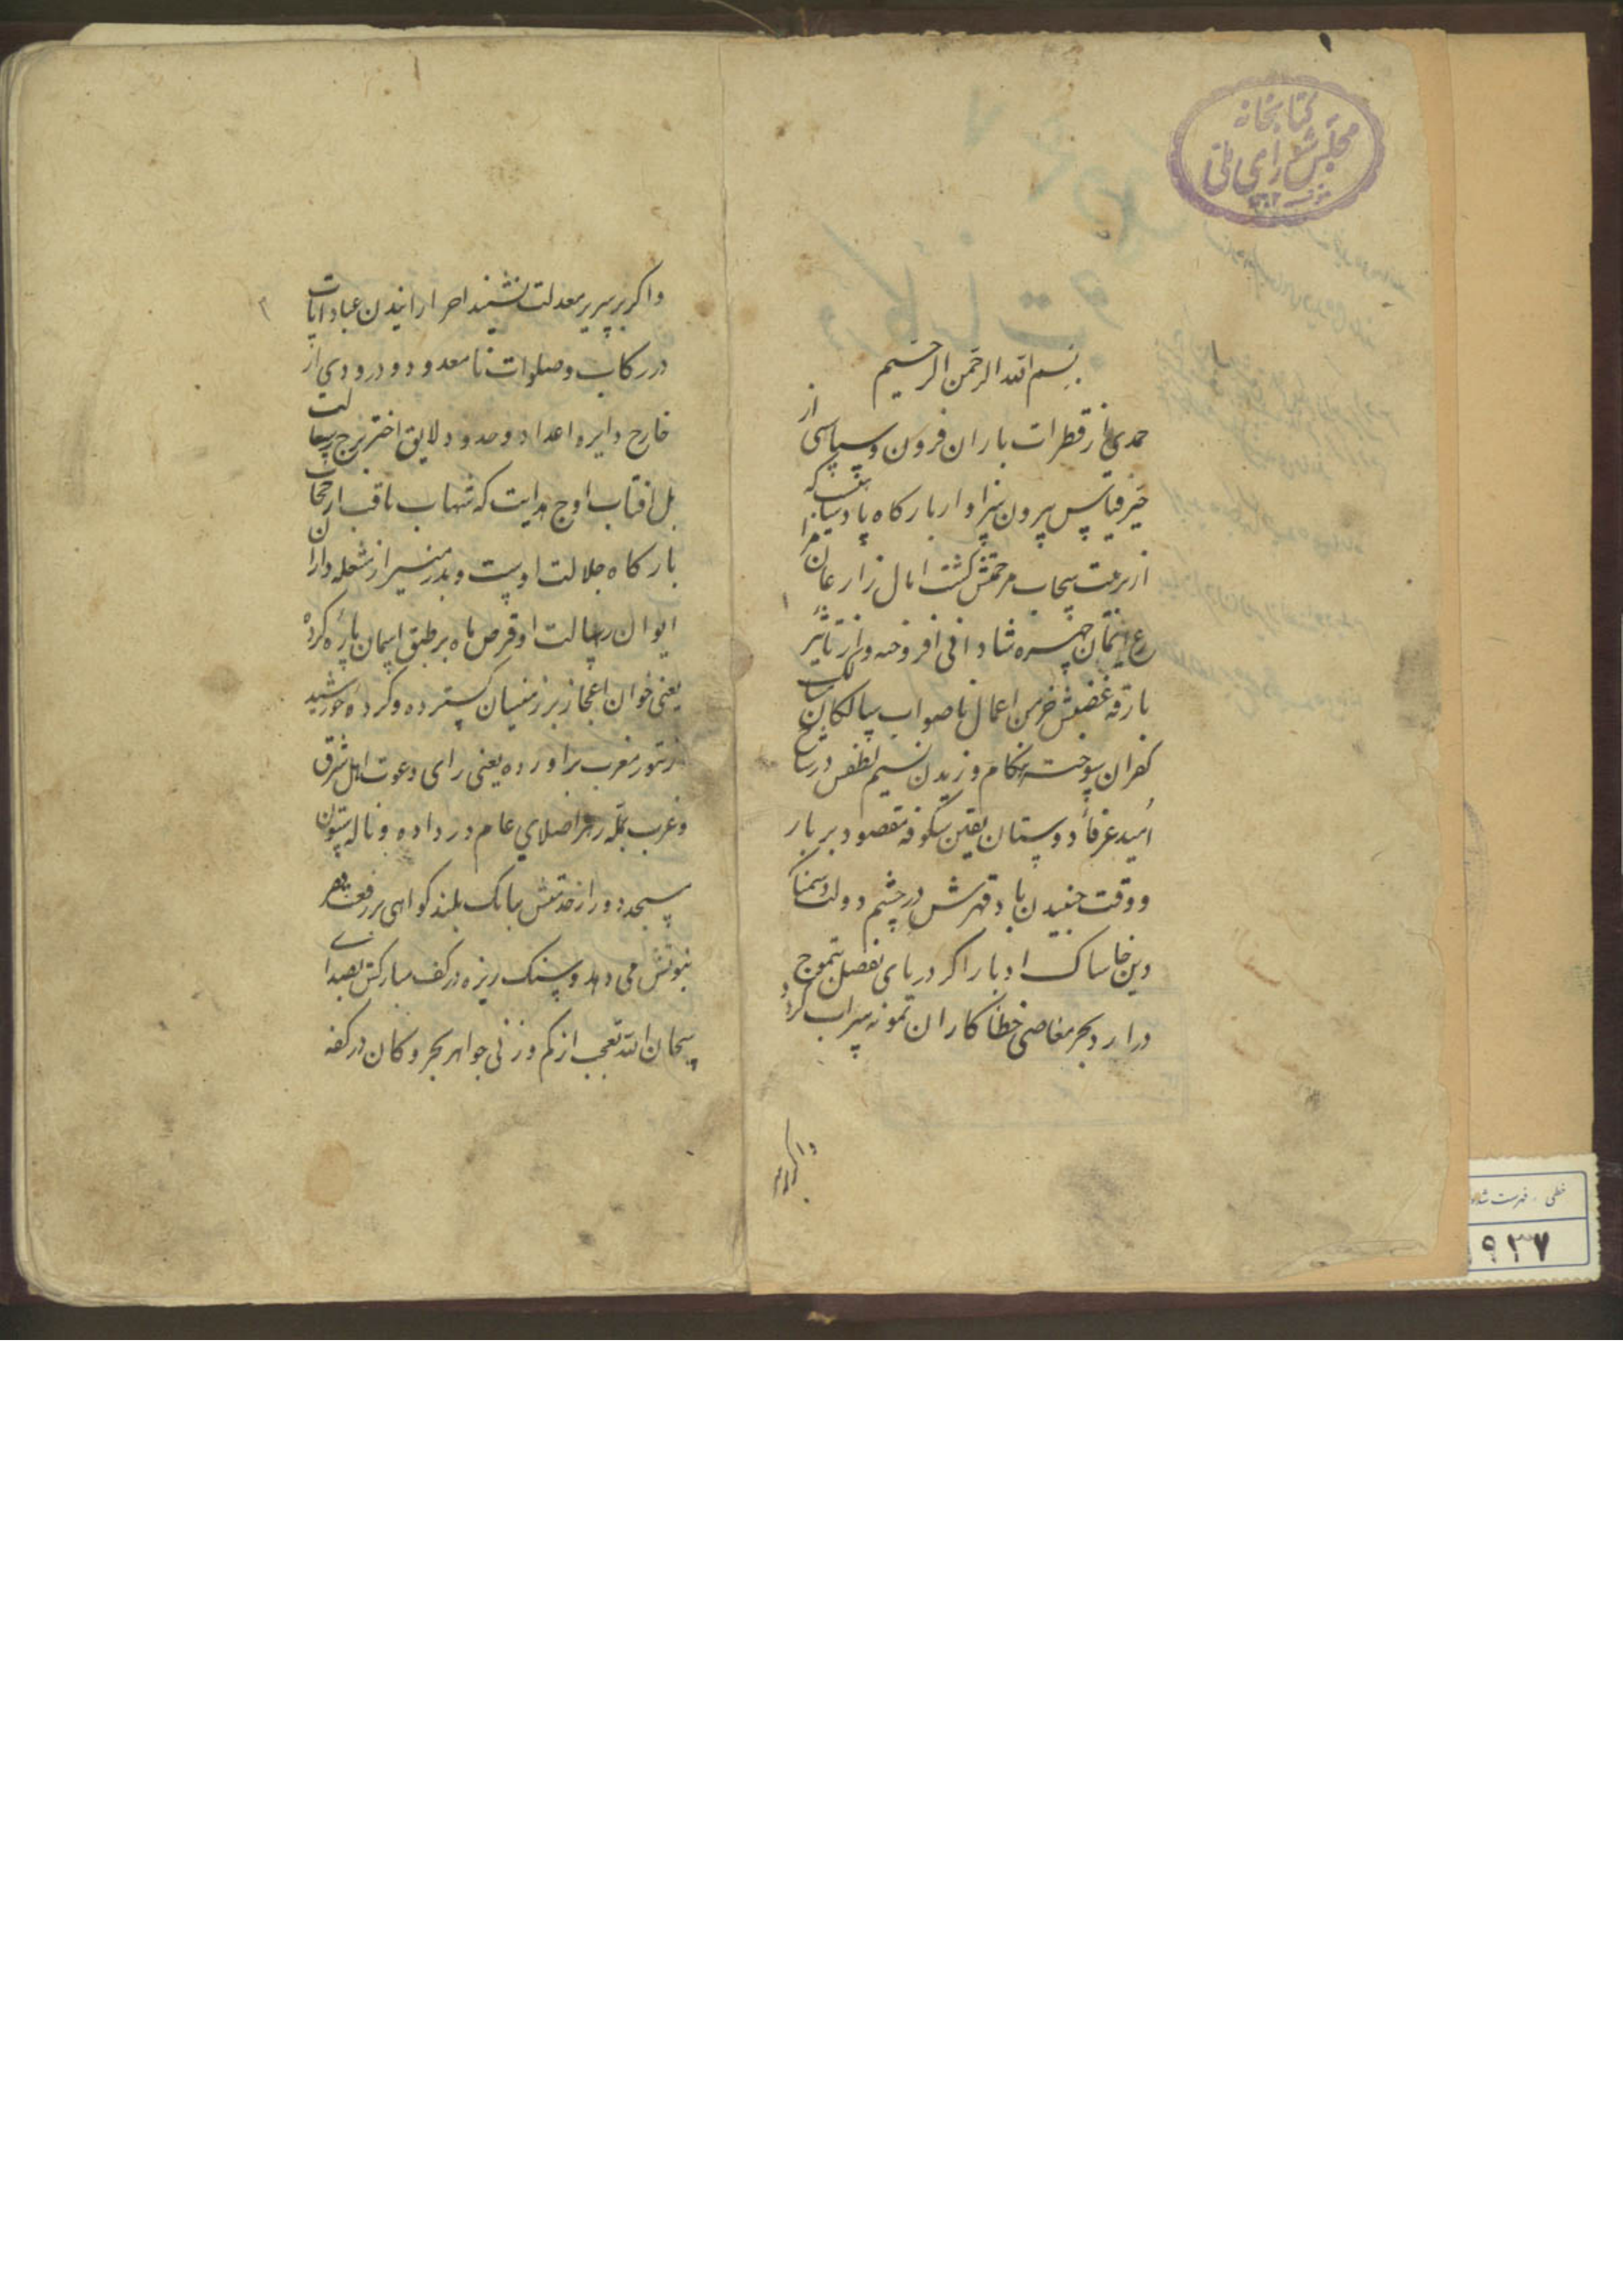 کتابخانه
مجلس شورای ملی
بسم الله الرحمن الرحیم
حمدی از قطرات باران فزون و سپاسی از
حیز قیاس بیرون سزاوار بارکاه پادشاهیست که
از ترشح سحاب مرحمتش کشت امال زارعان
چهره شادابی افروخته و از تأثیر
بارقه غضبش خرمن اعمال ناصواب سالکان مسالک
کفران سوخته هنکام وزیدن نسیم لطفش در شاخ
امید عرفأ دوستان یقین شکوفه مقصود بر بار
و وقت جنبیدن باد قهرش در چشم دولت دشمنان
دین خاساک ادبار اکر دریای تفضل بتموج
درارد بحر معاصی خطاکاران نمونه سراب کردد
و اکر بر
واکر بر سریر معدلت نشیند احرار عباد
در رکاب و صلوات نامعدود و درودی از
خارج دایره اعداد و حدود لایق اختر برج رسالت
بل افتاب اوج هدایت که شهاب ثاقب از
بارکاه جلالت اوست و بدر منیر از مشعله داران
ایوان رسالت او قرص ماه بر طبق اسمان پاره کرده
یعنی خوان اعجاز بر زمینیان کسترده و کرده خورشید
از تنور مغرب براورده یعنی برای دعوت اهل شرق
و غرب صلای عام در داده و ناله ستون
مسجد دور از خدمتش ببانک بلند کواهی بر رفعت
نبوتش می دهد و سنک ریزه در کف مبارکش بصدای
سبحان الله تعجب از کم وزنی جواهر بحر و کان در کفه
خطی - فهرست شده
۹۳۷